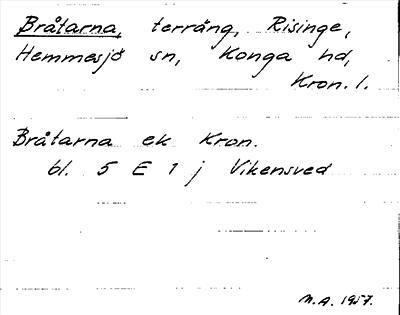 Bråtarna, terräng, Risinge,
Hemmesjö sn, Konga hd,
Kron. l.
Bråtarna ek Kron.
bl. 5 E 1 j Vikensved
M.A. 1957.